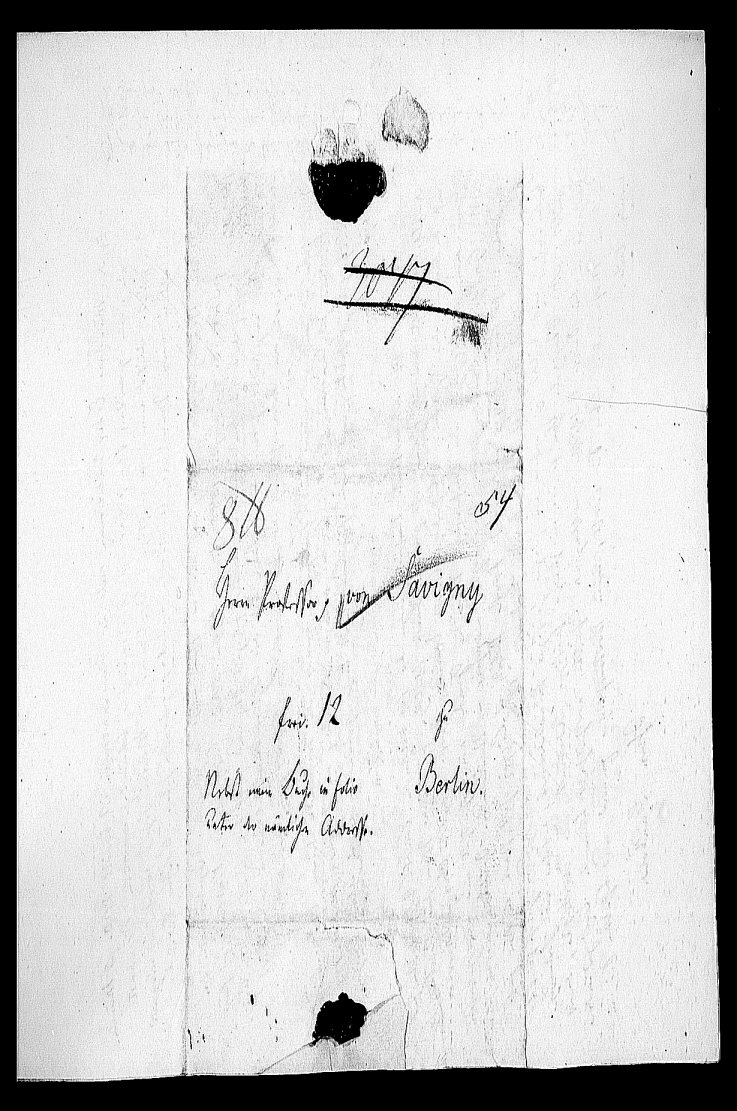 54
Herrn Professor, von Savigny
frei. 12
zu
Berlin.
Nebst ein Buch in folio
unter der nämlichen Addresse.